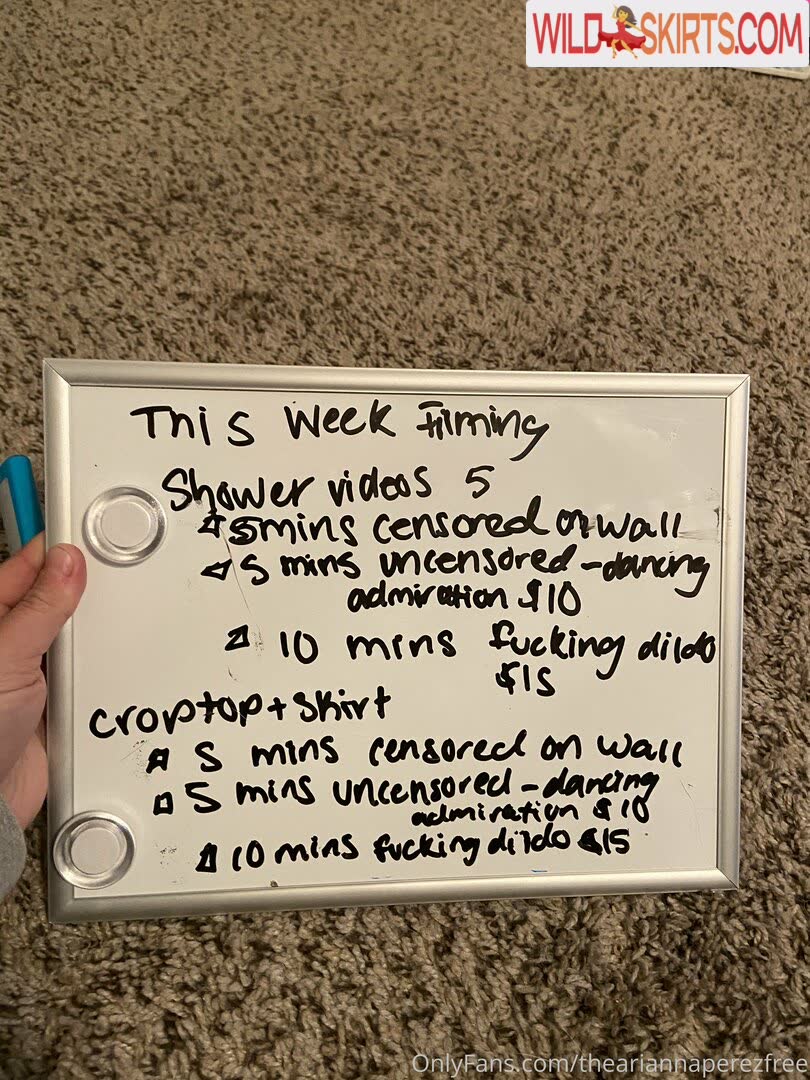 WILD SKIRTS.COM
This Week Filming
Shower videos 5
5 mins censored on wall
5 mins uncensored - dancing
admiration $10
10 mins fucking dildo
$15
croptop + skirt
5 mins censored on wall
5 mins uncensored - dancing
admiration $10
10 mins fucking dildo $15
OnlyFans.com/theariannaperezfree